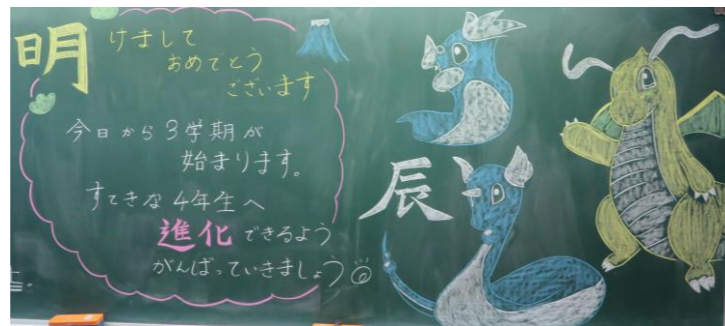 明けまして
おめでとう
ございます
今日から3学期が
始まります。
すてきな4年生へ
進化できるよう
がんばっていきましょう
辰